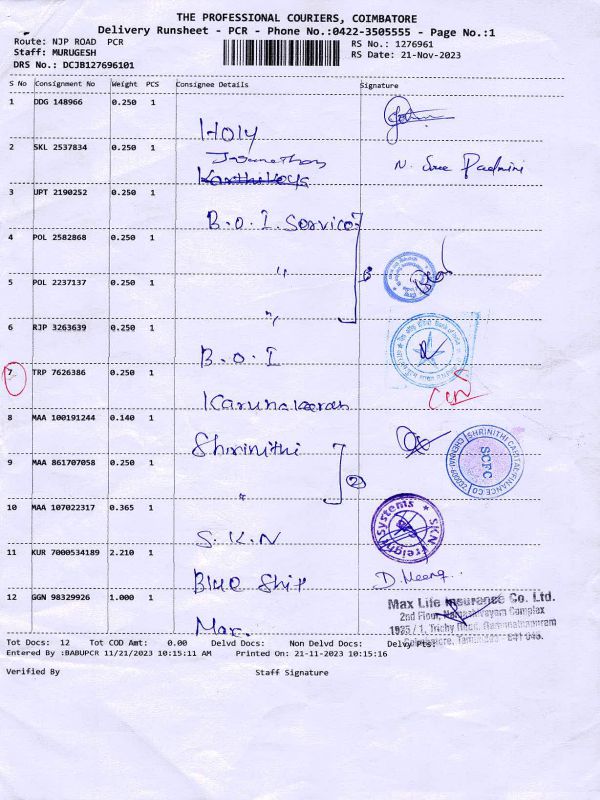 THE PROFESSIONAL COURIERS, COIMBATORE
Delivery Runsheet - PCR - Phone No.:0422-3505555 - Page No.:1
Route: NJP ROAD PCR
Staff: MURUGESH
DRS No.: DCJB127696101
RS No.: 1276961
RS Date: 21-Nov-2023
S No Consignment No Weight PCS Consignee Details Signature
1 DDG 148966 0.250 1
Holy
2 SKL 2537834 0.250 1
N. Sree Padmini
3 UPT 2190252 0.250 1
B.O.I. Service
4 POL 2582868 0.250 1
"
5 POL 2237137 0.250 1
"
6 RJP 3263639 0.250 1
B.O.I
7 TRP 7626386 0.250 1
Karunakaran
8 MAA 100191244 0.140 1
Shrinithi
9 MAA 861707058 0.250 1
" 2
SHRINITHI CAPITAL FINANCE CO
SCFC
10 MAA 107022317 0.365 1
S.K.N
SKN Freight Systems
11 KUR 7000534189 2.210 1
Blue Ship
D. Meena
12 GGN 98329926 1.000 1
Max.
Max Life Insurance Co. Ltd.
2nd Floor, Complex
1925 / 1, Trichy Road,
Coimbatore, Tamilnadu - 641 045.
Tot Docs: 12 Tot COD Amt: 0.00 Delvd Docs: Non Delvd Docs: Delvy Pts:
Entered By :BABUPCR 11/21/2023 10:15:11 AM Printed On: 21-11-2023 10:15:16
Verified By Staff Signature